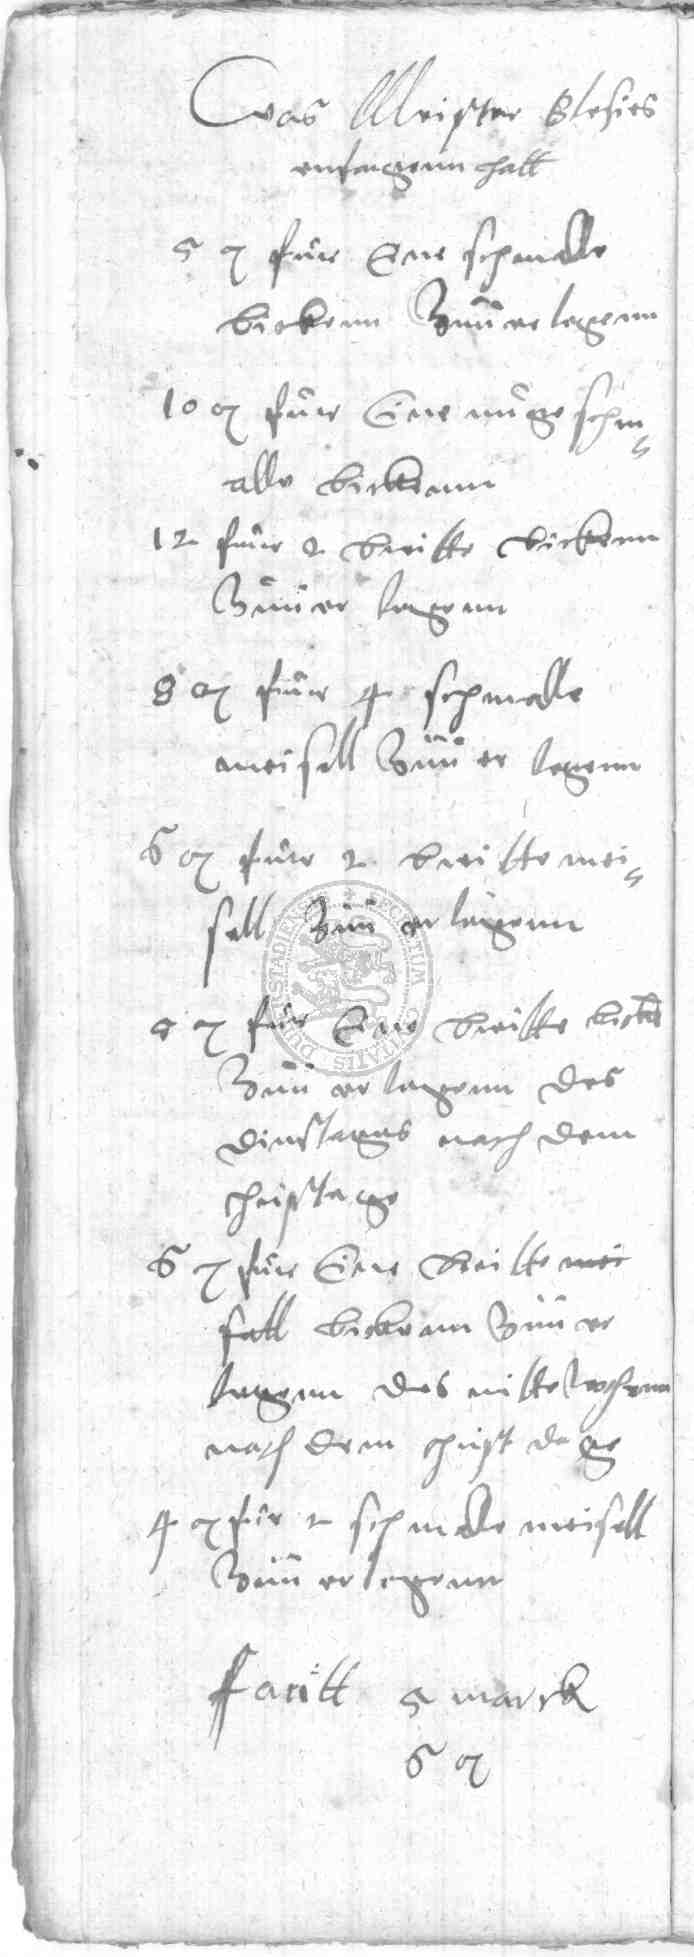 Was Meister Blesies
enfangenn hatt
5 ₰ für Eine schmalle
bickenn Zuuerlegenn
10 ₰ für Eine nüge schm
alle bickenn
12 für 2 breitte bickenn
Zuuer legenn
8 ₰ für 4 schmalle
meisell Zuuer legenn
6 ₰ für 2 breitte mei
sell Zuuerlegenn
₰ für Eine breitte
Zuuerlegenn des
dinstages nach dem
christage
6 ₰ für Eine breitte mei
sell bickenn Zuuer
legenn des mittewochenn
nach dem christ dage
4 ₰ für 2 schmalle meisell
Zuuerlegenn
facitt 5 marck
6 ₰
SECRETUM CIVITATIS DUDERSTADIENSIS